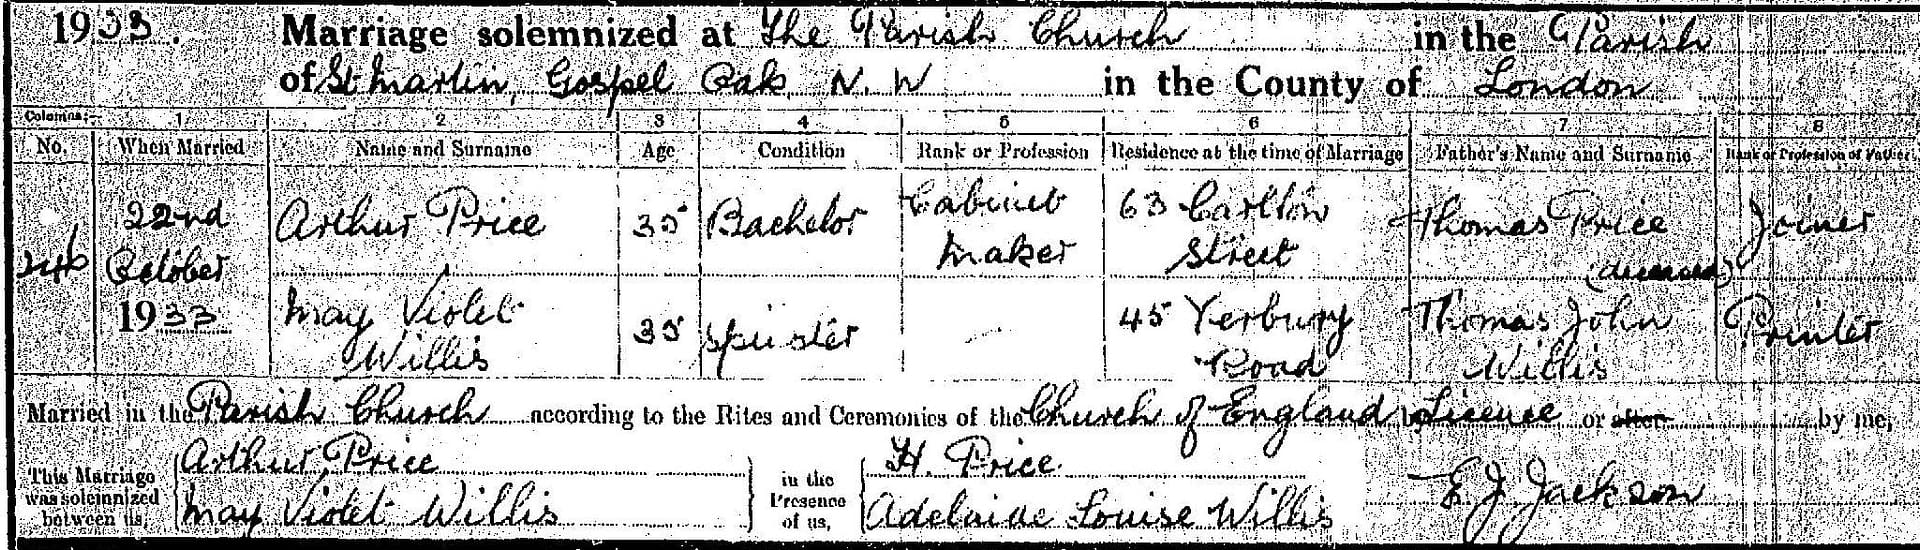 1933. Marriage solemnized at The Parish Church in the Parish
of St Martin, Gospel Oak N. W in the County of London
Columns:— 1 2 3 4 5 6 7 8
No. When Married Name and Surname Age Condition Rank or Profession Residence at the time of Marriage Father's Name and Surname Rank or Profession of Father
246 22nd October 1933 Arthur Price 35 Bachelor Cabinet Maker 63 Carlton Street Thomas Price (deceased) Joiner
May Violet Willis 35 Spinster — 45 Yerbury Road Thomas John Willis Printer
Married in the Parish Church according to the Rites and Ceremonies of the Church of England by Licence or after by me,
This Marriage was solemnized between us, Arthur Price in the Presence of us, H. Price E. J. Jackson
May Violet Willis Adelaide Louise Willis